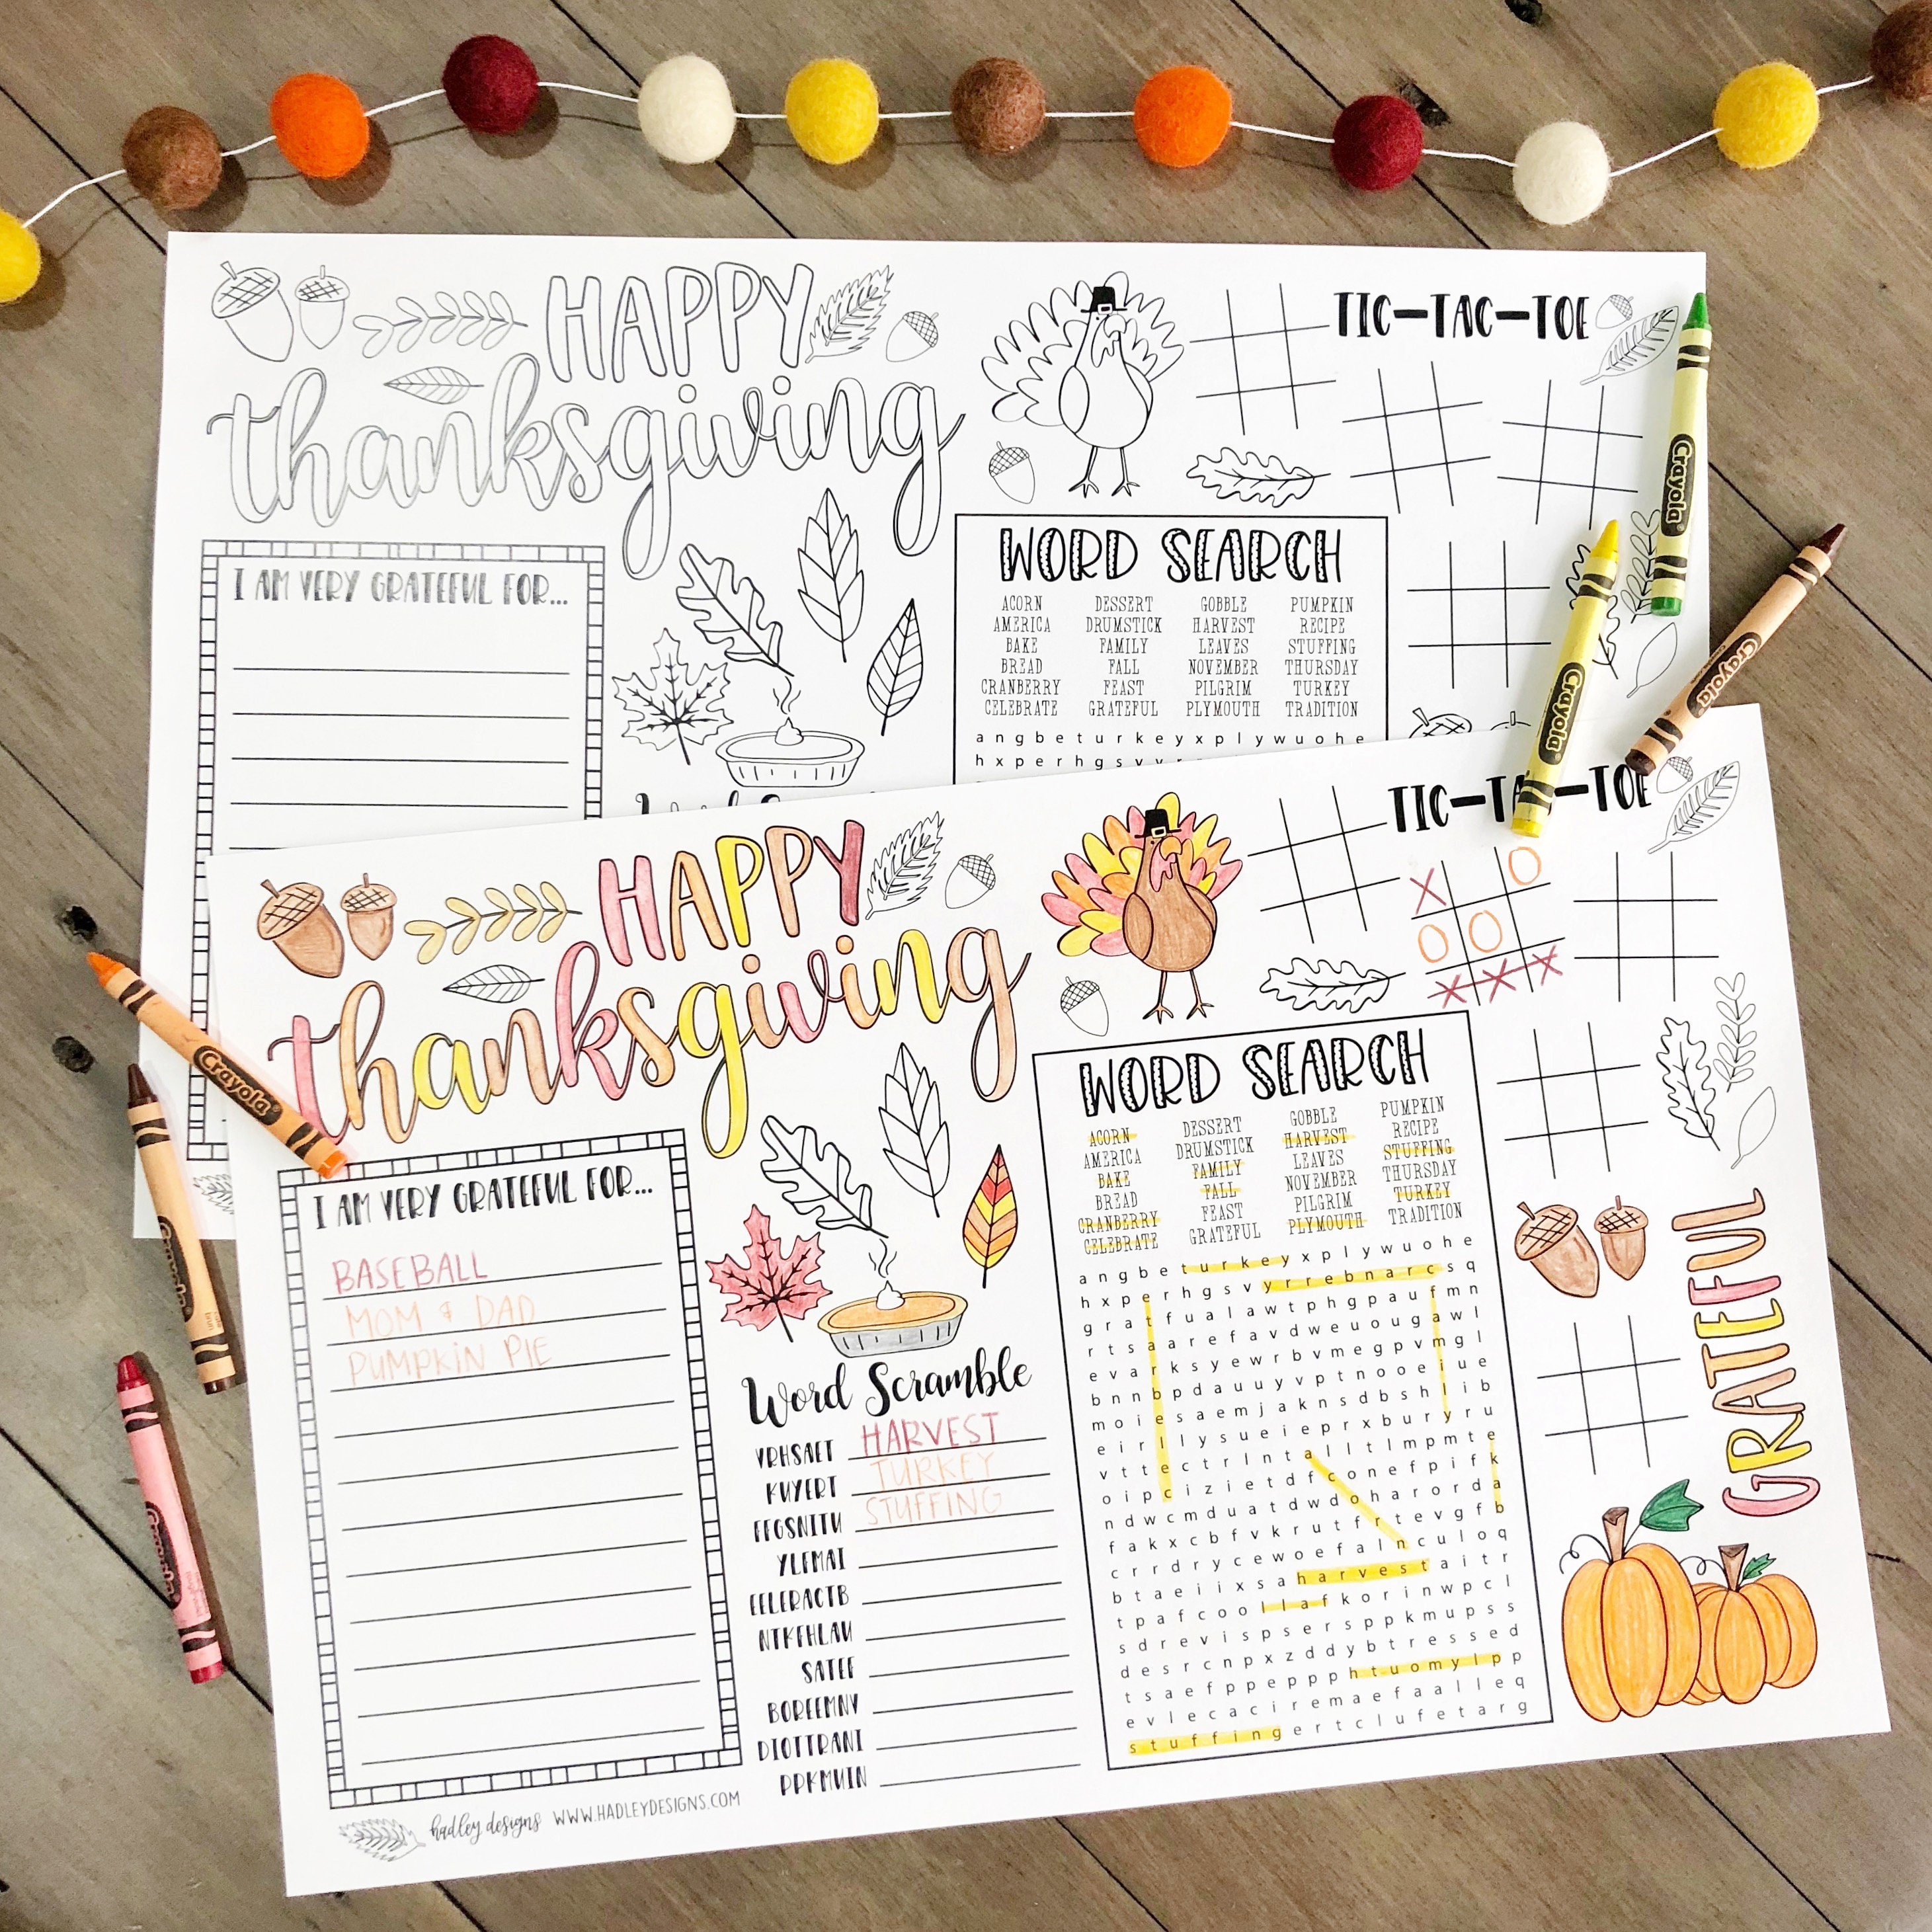 HAPPY
thanksgiving
TIC-TAC-TOE
I AM VERY GRATEFUL FOR...
WORD SEARCH
ACORN DESSERT GOBBLE PUMPKIN
AMERICA DRUMSTICK HARVEST RECIPE
BAKE FAMILY LEAVES STUFFING
BREAD FALL NOVEMBER THURSDAY
CRANBERRY FEAST PILGRIM TURKEY
CELEBRATE GRATEFUL PLYMOUTH TRADITION
a n g b e t u r k e y x p l y w u o h e
h x p e r h g s v y
Crayola
Crayola
Crayola
HAPPY
thanksgiving
TIC-TAC-TOE
X O
O O
X X X
I AM VERY GRATEFUL FOR...
BASEBALL
MOM & DAD
PUMPKIN PIE
Word Scramble
VRHSAET HARVEST
KUYERT TURKEY
FFGSNITU STUFFING
YLFMAI
EELERACTB
NTKFHLAU
SATEF
BOREEMNV
DIOTTRANI
PPKMUIN
WORD SEARCH
ACORN DESSERT GOBBLE PUMPKIN
AMERICA DRUMSTICK HARVEST RECIPE
BAKE FAMILY LEAVES STUFFING
BREAD FALL NOVEMBER THURSDAY
CRANBERRY FEAST PILGRIM TURKEY
CELEBRATE GRATEFUL PLYMOUTH TRADITION
a n g b e t u r k e y x p l y w u o h e
h x p e r h g s v y r r e b n a r c s q
g r a t f u a l a w t p h g p a u f m n
r t s a a r e f a v d w e u o u g a w l
e v a r k s y e w r b v m e g p v m g l
b n n b p d a u u y v p t n o o e i u e
m o i e s a e m j a k n s d b s h l i b
e i r l l y s u e i e p r x b u r y r u
v t t e c t r l n t a l l t l m p m t e
o i p c i z i e t d f c o n e f p i f k
n d w c m d u a t d w d o h a r o r d a
f a k x c b f v k r u t f r t e v g f b
c r r d r y c e w o e f a l n c u l o q
b t a e i i x s a h a r v e s t a i t r
t p a f c o o l l a f k o r i n w p c l
s d r e v i s p s e r s p p k m u p s s
d e s r c n p x z d d y b t r e s s e d
t s a e f p p e p p p h t u o m y l p p
e v l e c a c i r e m a e f a a l l e q
s t u f f i n g e r t c l u f e t a r g
GRATEFUL
hadley designs WWW.HADLEYDESIGNS.COM
Crayola
Crayola
Crayola